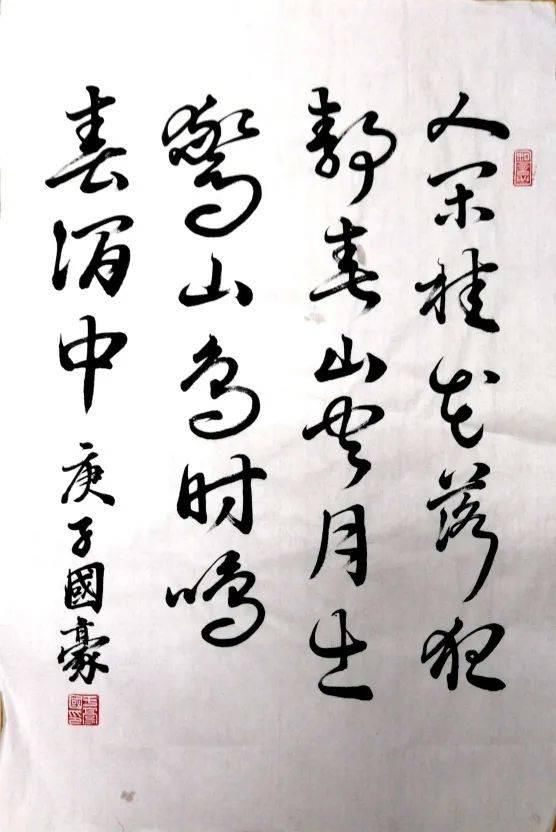 人闲桂花落夜
静春山空月出
驚山鸟时鸣
春涧中
庚子國豪